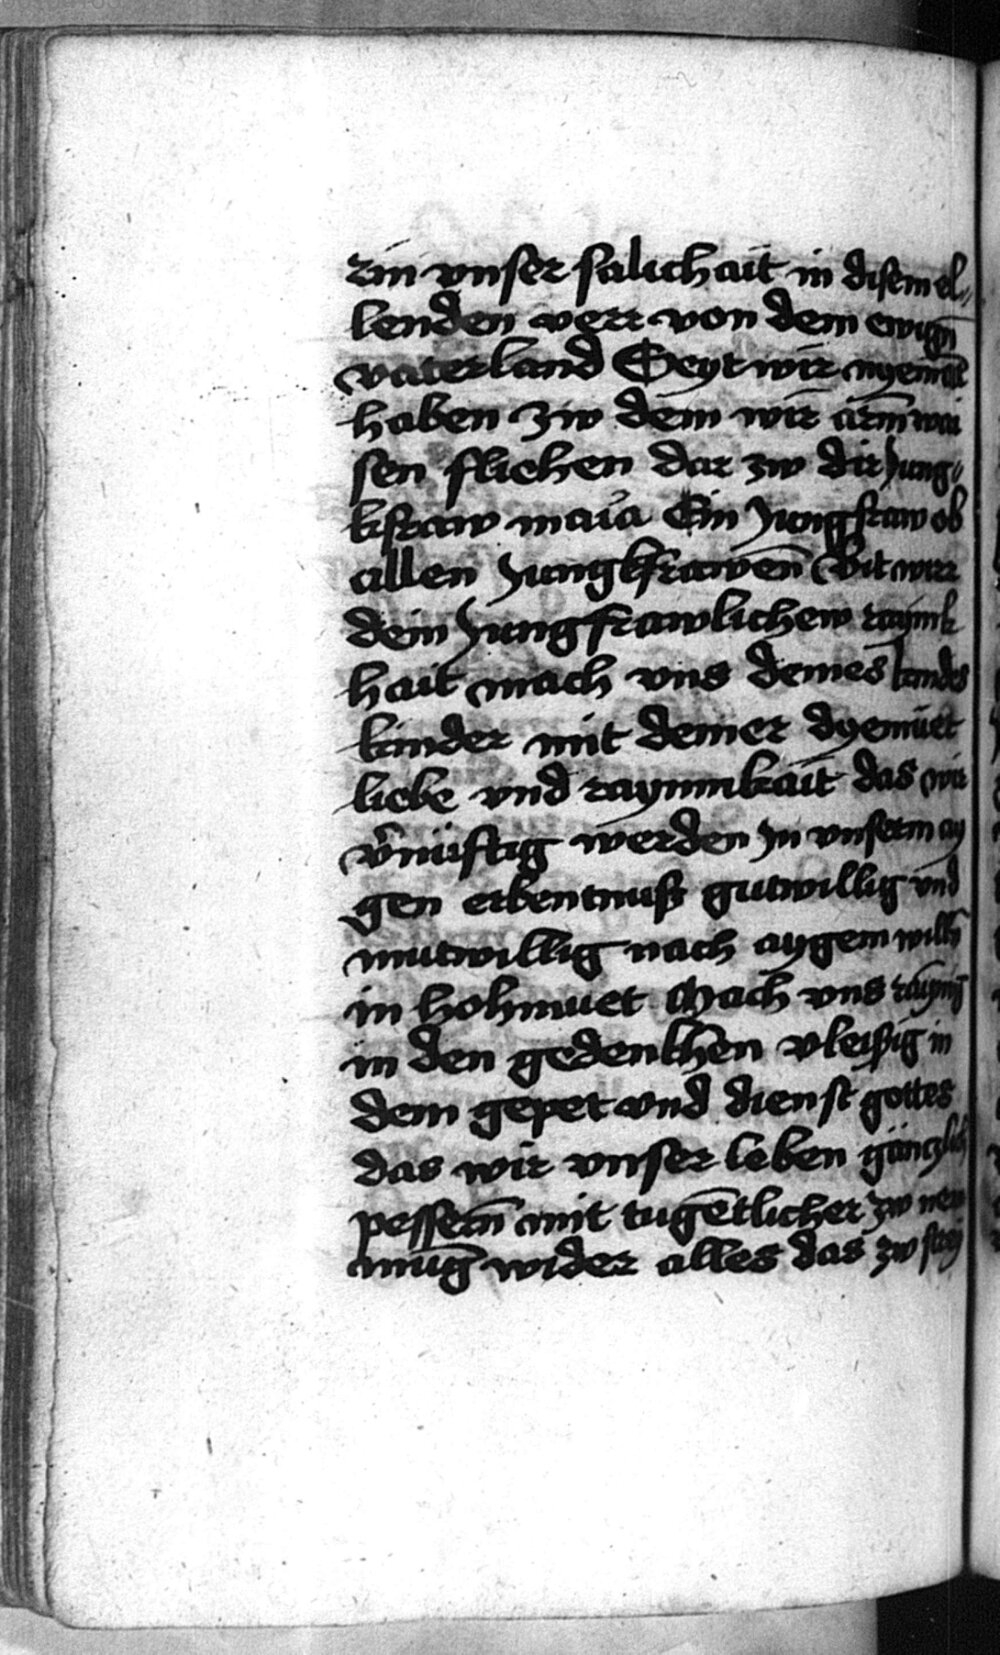 rin vnser salichait in disem el„
lenden verr von dem ewigñ
vaterland Seyt wir nyemāt
haben zw dem wir arm̄ wai
sen fliehen dar zw dir Jung„
kfraw maria Ein Jungfraw ob
allen Jungkfrawen̄ Bit wirr
dein Jungfrawlichew raynik
hait mach vns deines landes
kinder mit deiner dyemüet
liebe vnd raynnikait das wir
v̄nüftig werden Jn vnserm ay
gen erkentnuß gutwillig vnd
mutwillig nach aygem willn̄
in hohmuet Mach vns
in den gedenkhen vleissig in
dem gepet vnd dienst gottes
das wir vnser leben gänczlich
pessern̄ mit tugētlicher zw
muḡ wider alles das zw